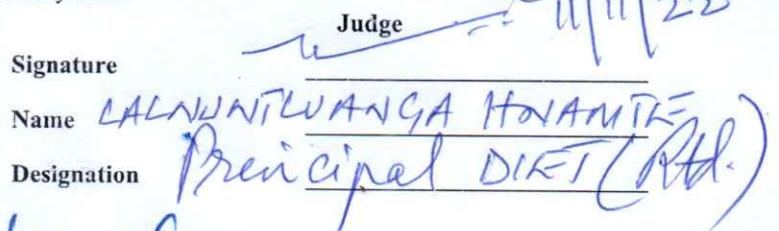 Judge
11/11/22
Signature
Name LALNUNTLUANGA HNAMTE
Designation Principal DIET (Rtd.)